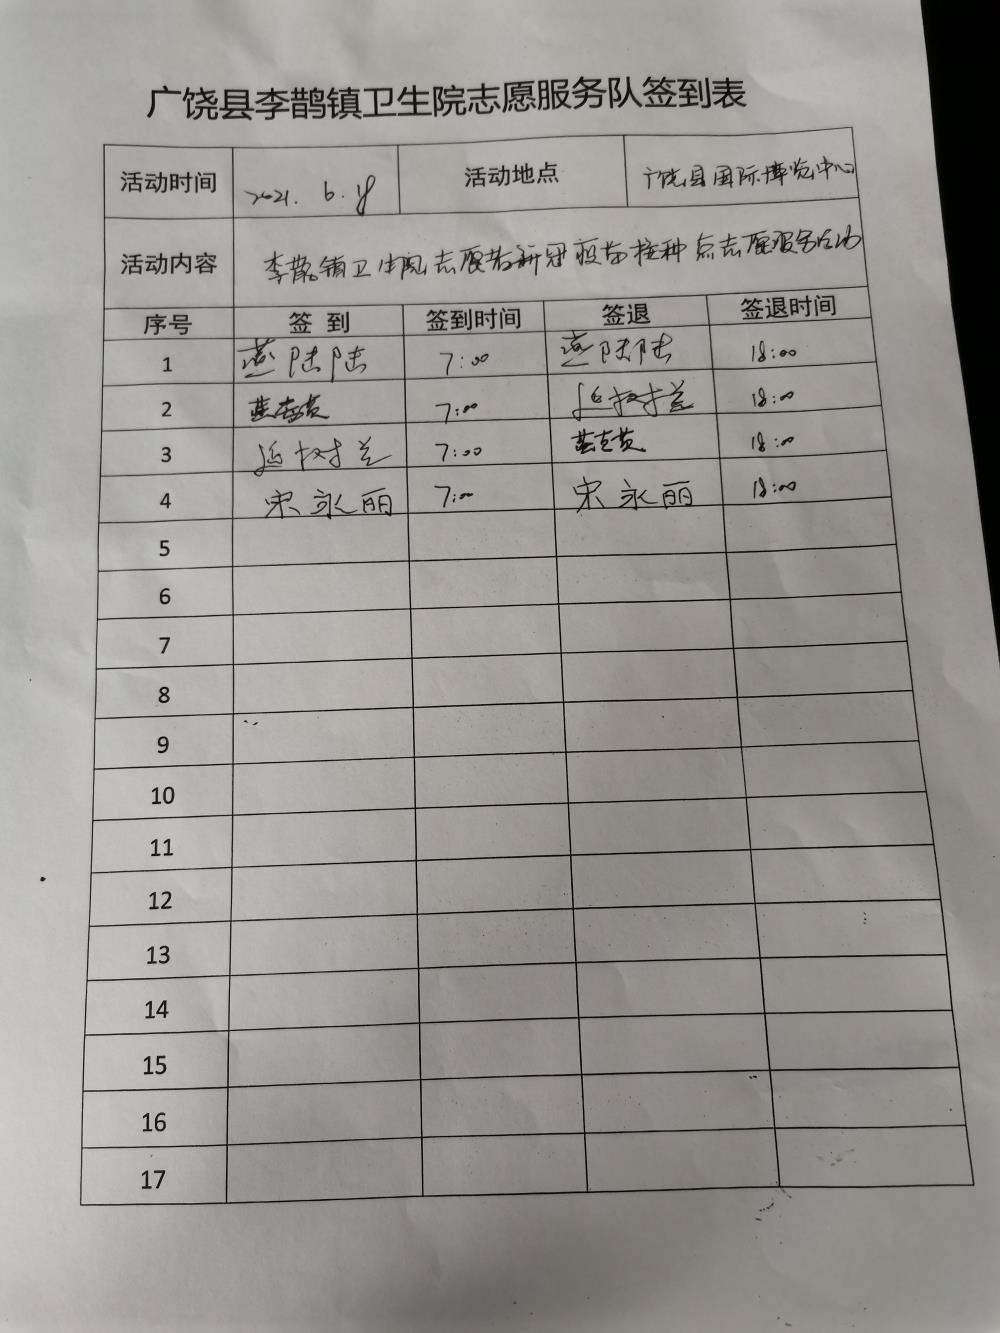 广饶县李鹊镇卫生院志愿服务队签到表
活动时间 2021. 6. 活动地点 广饶县国际博览中心
活动内容 李鹊镇卫生院志愿者新冠疫苗接种点志愿服务活动
序号 签到 签到时间 签退 签退时间
1 燕陆陆 7:00 燕陆陆 18:00
2 7:00 延树兰 18:00
3 延树兰 7:00 18:00
4 宋永丽 7:00 宋永丽 18:00
5
6
7
8
9
10
11
12
13
14
15
16
17